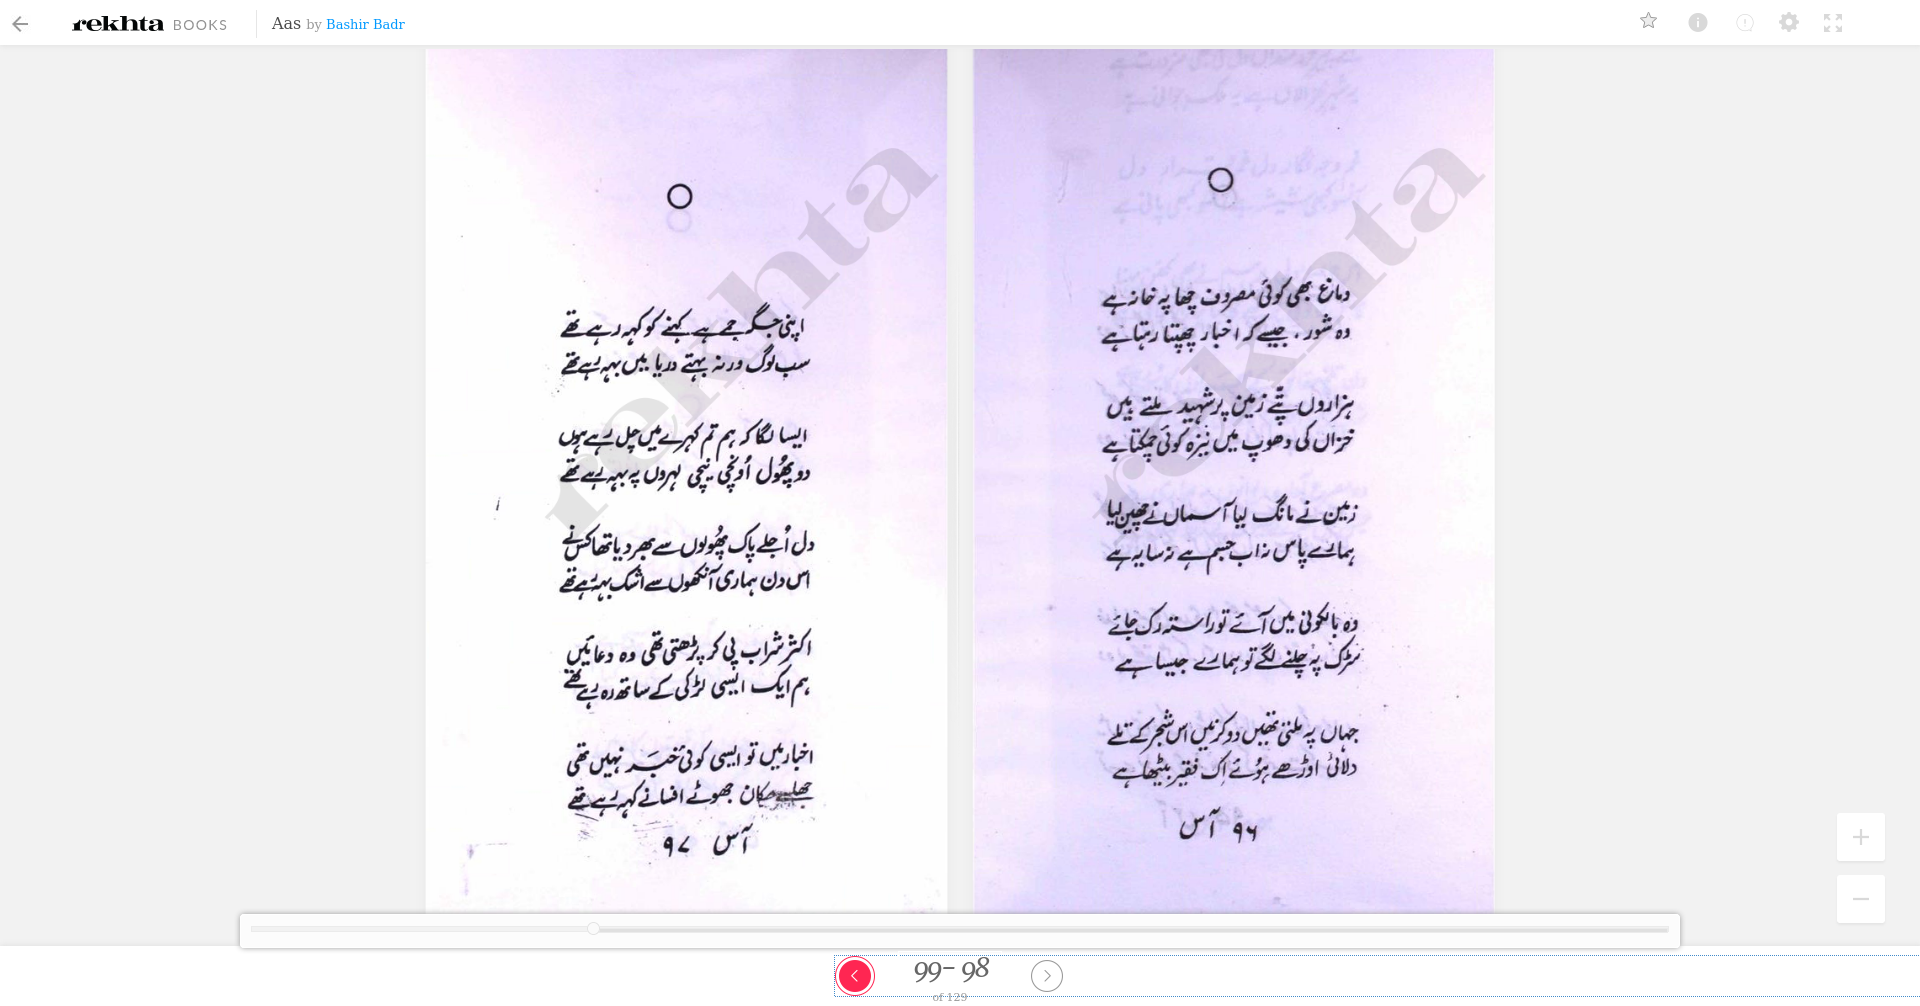 rekhta BOOKS
Aas by Bashir Badr
دماغ بھی کوئی مصروف چھاپہ خانہ ہے
وہ شور . جیسے کہ اخبار چھپتا رہتا ہے
ہزاروں پتّے زمین پر شہید ملتے ہیں
خزاں کی دھوپ میں نیزہ کوئی چمکتا ہے
زمین نے مانگ لیا آسماں نے چھین لیا
ہمارے پاس نہ اب جسم ہے نہ سایہ ہے
وہ بالکونی میں آئے تو راستہ رک جائے
سڑک پہ چلنے لگے تو ہمارے جیسا ہے
جہاں پہ ملتی تھیں دو کرنیں اس شجر کے تلے
دلائی اوڑھے ہوئے اِک فقیر بیٹھا ہے
۹۶ آس
rekhta
اپنی جگہ جمے ہے کہنے کو کہہ رہے تھے
سب لوگ ورنہ بہتے دریا میں بہہ رہے تھے
ایسا لگا کہ ہم تم کہرے میں چل رہے ہوں
دو پھُول اُونچی نیچی لہروں پہ بہہ رہے تھے
دل اُجلے پاک پھُولوں سے بھر دیا تھا کس نے
اس دن ہماری آنکھوں سے اشک بہہ رہے تھے
اکثر شراب پی کر پڑھتی تھی وہ دعائیں
ہم ایک ایسی لڑکی کے ساتھ رہ رہے تھے
اخبار میں تو ایسی کوئی خبر نہیں تھی
مکان جھوٹے افسانے کہہ رہے تھے
آس ۹۷
rekhta
99- 98
of 129